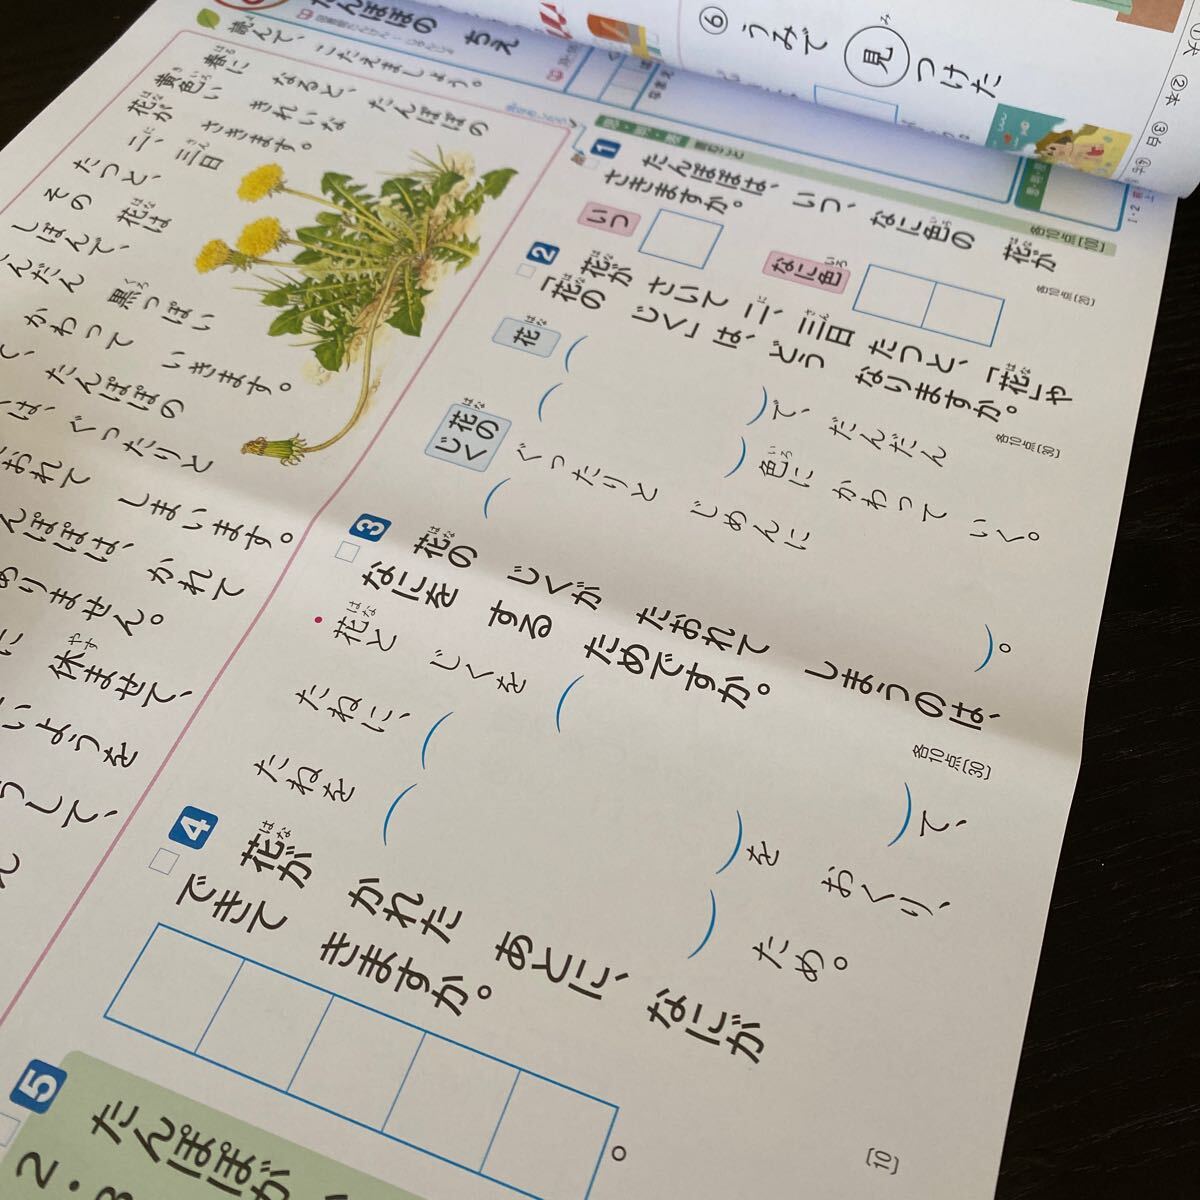 ⑥ うみで 見つけた
み
②本 ③白
たんぽぽの ちえ
読んで、こたえましょう。
春に なると、たんぽぽの
はる
黄色い きれいな
き いろ
花が さきます。
はな
二、三日
に さん
たつと、
その 花は
はな
しぼんで、
黒っぽい
くろ
かわって いきます。
たんぽぽの
は、ぐったりと
おれて しまいます。
んぽぽは、かれて
ありません。
に 休ませて、
やす
いようを
うして、
各10点[100]
1 たんぽぽは、いつ、なに色の 花が
いろ はな
さきますか。
各10点[20]
いつ
なに色
いろ
2 花が さいて 二、三日 たつと、「花」や
はな に さん はな
「花の じく」は、どう なりますか。
はな
各10点[30]
花
はな
( )で、だんだん
( )色に かわって いく。
いろ
花の
はな
じく
ぐったりと じめんに
( )。
3 花の じくが たおれて しまうのは、
はな
なにを する ためですか。
各10点[30]
・花と じくを ( )て、
はな
たねに、( )を おくり、
たねを ( ) ため。
4 花が かれた あとに、なにが
はな
できて きますか。
[10]
。
5 たんぽぽが
2・3